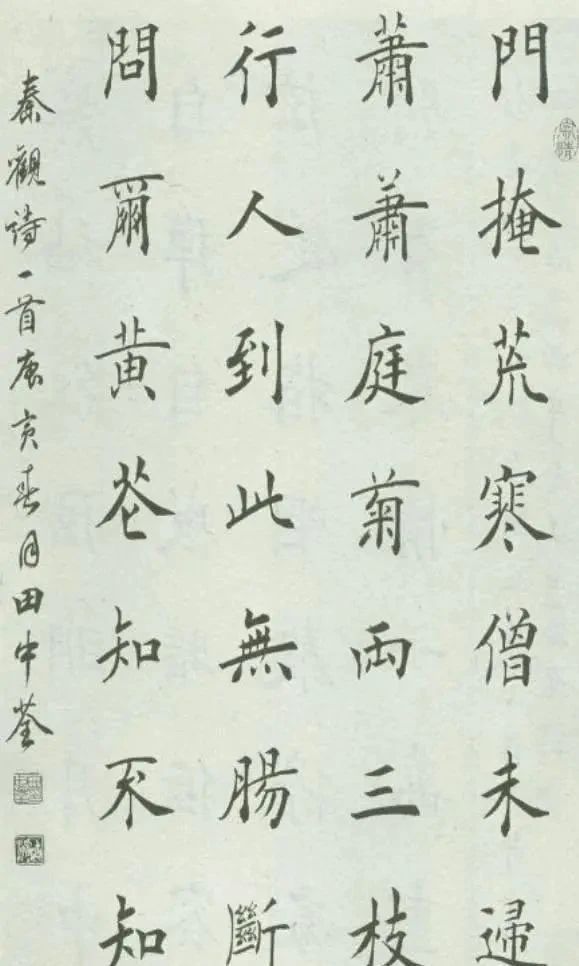 門掩荒寒僧未歸
蕭蕭庭菊兩三枝
行人到此無腸斷
問爾黃花知不知
秦觀詩一首庚寅春月田中荃